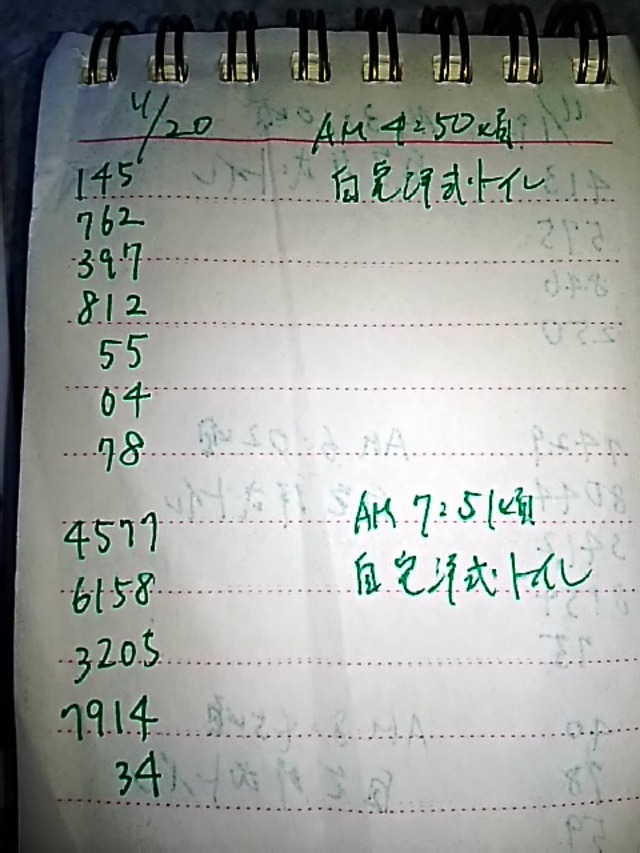 4/20 AM 4:50頃
145 自宅洋式トイレ
762
397
812
55
04
78
4577 AM 7:51頃
6158 自宅洋式トイレ
3205
7914
34